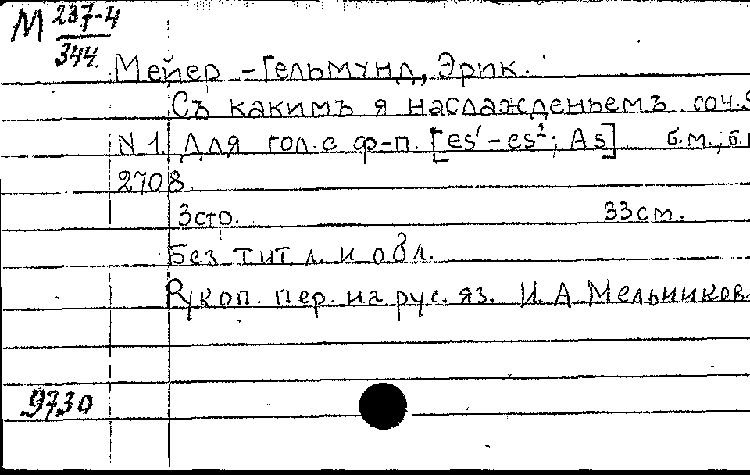 М 237-4
344
Мейер-Гельмунд, Эрик.
Съ какимъ я наслажденьемъ. соч.
N 1. Для гол. с ф-п. [es¹-es²; As] б.м., б.
2708.
3 стр. 33 см.
Без тит л. и обл.
Рукоп. пер. на рус. яз. И. А Мельников
9730